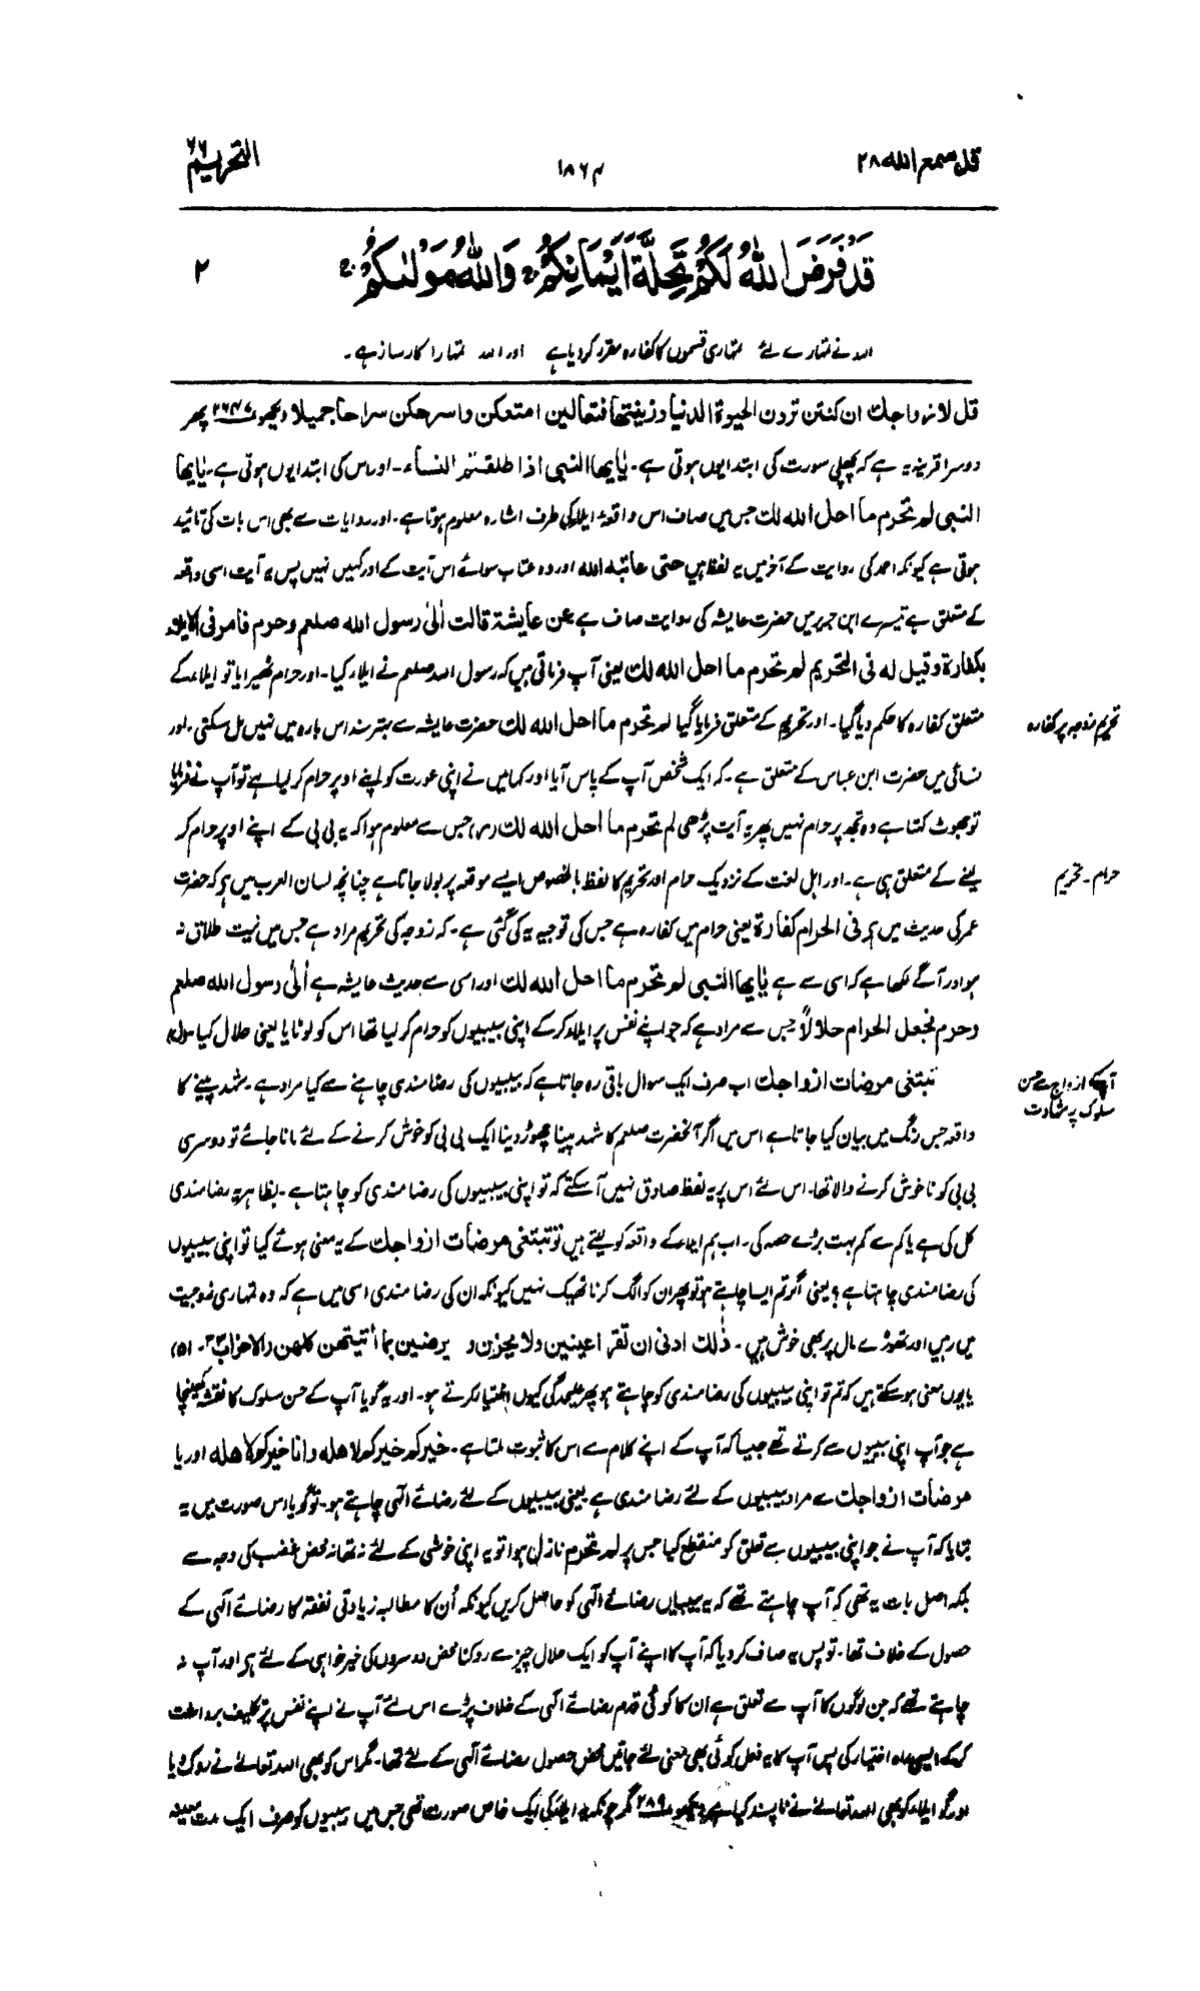 قد سمع الله ۲۸
۱۸۶۴
التحریم ۶۶
قَدْ فَرَضَ اللهُ لَكُمْ تَحِلَّةَ اَيْمَانِكُمْ وَاللهُ مَوْلٰىكُمْ
۲
اللہ نے تمہارے لئے تمہاری قسموں کا کفارہ مقرر کر دیا ہے اور اللہ تمہارا کارساز ہے۔
قل لازواجك ان كنتن تردن الحيوة الدنيا وزينتها فتعالين امتعكن واسرحكن سراحا جميلا دیکھو ۲۶۴۷ پھر
دوسرا قرینہ یہ ہے کہ پچھلی سورت کی ابتدا یوں ہوتی ہے۔ یٰایھا النبی اذا طلقتم النساء۔ اور اس کی ابتدا یوں ہوتی ہے۔ یٰایھا
النبی لم تحرم ما احل الله لك جس میں صاف اس واقعۂ ایلا کی طرف اشارہ معلوم ہوتا ہے۔ اور روایات سے بھی اس بات کی تائید
ہوتی ہے کیونکہ احمد کی روایت کے آخر میں یہ لفظ ہیں حتی عاتبه الله اور وہ عتاب سوائے اس آیت کے اور کہیں نہیں پس یہ آیت اسی واقعہ
کے متعلق ہے تیسرے ابن جریر میں حضرت عایشہ کی روایت صاف ہے عن عایشة قالت اٰلیٰ رسول الله صلعم وحرم فامر فی الایلاء
بکفارة وقیل له فی التحریم لم تحرم ما احل الله لك یعنی آپ فرماتی ہیں کہ رسول اللہ صلعم نے ایلاء کیا۔ اور حرام ٹھیرایا تو ایلاء کے
متعلق کفارہ کا حکم دیا گیا۔ اور تحریم کے متعلق فرمایا گیا لم تحرم ما احل الله لك حضرت عایشہ سے بہتر سند اس بارہ میں نہیں مل سکتی۔ اور
تحریم زوجہ پر کفارہ
نسائی میں حضرت ابن عباس کے متعلق ہے۔ کہ ایک شخص آپ کے پاس آیا اور کہا میں نے اپنی عورت کو اپنے اوپر حرام کر لیا ہے تو آپ نے فرمایا
تو جھوٹ کہتا ہے وہ تجھ پر حرام نہیں پھر یہ آیت پڑھی لم تحرم ما احل الله لك جس سے معلوم ہوا کہ یہ بی بی کے اپنے اوپر حرام کر
لینے کے متعلق ہی ہے۔ اور اہل لغت کے نزدیک حرام اور تحریم کا لفظ بالخصوص ایسے موقعہ پر بولا جاتا ہے چنانچہ لسان العرب میں ہے کہ حضرت
حرام۔ تحریم
عمر کی حدیث میں ہے فی الحرام کفارة یعنی حرام میں کفارہ ہے جس کی توجیہ یہ کی گئی ہے۔ کہ زوجہ کی تحریم مراد ہے جس میں نیت طلاق نہ
ہو اور آگے لکھا ہے کہ اسی سے ہے یٰایھا النبی لم تحرم ما احل الله لك اور اسی سے حدیث عایشہ ہے اٰلیٰ رسول الله صلعم
وحرم فجعل الحرام حلالاً جس سے مراد ہے کہ جو اپنے نفس پر ایلاء کر کے اپنی بیبیوں کو حرام کر لیا تھا اس کو لوٹایا یعنی حلال کیا
تبتغی مرضات ازواجك اب صرف ایک سوال باقی رہ جاتا ہے کہ بیبیوں کی رضامندی چاہنے سے کیا مراد ہے۔ شہد پینے کا
آپ کے ازواج سے حسن
سلوک پر شہادت
واقعہ جس رنگ میں بیان کیا جاتا ہے اس میں اگر آنحضرت صلعم کا شہد پینا چھوڑ دینا ایک بی بی کو خوش کرنے کے لئے مانا جائے تو دوسری
بی بی کو ناخوش کرنے والا تھا۔ اس لئے اس پر یہ لفظ صادق نہیں آسکتے کہ تو اپنی بیبیوں کی رضامندی کو چاہتا ہے۔ بظاہر یہ رضامندی
کل کی ہے یا کم سے کم بہت بڑے حصہ کی۔ اب ہم ایلاء کے واقعہ کو لیتے ہیں تو تبتغی مرضات ازواجك کے یہ معنی ہوئے کیا تو اپنی بیبیوں
کی رضامندی چاہتا ہے؟ یعنی اگر تم ایسا چاہتے ہو تو پھر ان کو الگ کرنا ٹھیک نہیں کیونکہ ان کی رضامندی اسی میں ہے کہ وہ تمہاری زوجیت
میں رہیں اور تھوڑے مال پر بھی خوش ہیں۔ ذٰلك ادنی ان تقر اعینهن ولا یحزن و یرضین بما اٰتیتهن کلهن (الاحزاب ۳۳۔ ۵۱)
یا یوں معنی ہو سکتے ہیں کہ تم تو اپنی بیبیوں کی رضامندی کو چاہتے ہو پھر علیحدگی کیوں اختیار کرتے ہو۔ اور یہ گویا آپ کے حسن سلوک کا نقشہ کھینچا
ہے جو آپ اپنی بیبیوں سے کرتے تھے جیسا کہ آپ کے اپنے کلام سے اس کا ثبوت ملتا ہے۔ خیرکم خیرکم لاهله وانا خیرکم لاهله اور یا
مرضات ازواجك سے مراد بیبیوں کے لئے رضامندی ہے یعنی بیبیوں کے لئے رضائے الٰہی چاہتے ہو۔ تو گویا اس صورت میں یہ
بتایا کہ آپ نے جو اپنی بیبیوں سے تعلق کو منقطع کیا جس پر لم تحرم نازل ہوا تو یہ اپنی خوشی کے لئے نہ تھا نہ محض غضب کی وجہ سے
بلکہ اصل بات یہ تھی کہ آپ چاہتے تھے کہ یہ بیبیاں رضائے الٰہی کو حاصل کریں کیونکہ اُن کا مطالبہ زیادتی نفقہ کا رضائے الٰہی کے
حصول کے خلاف تھا۔ تو پس یہ صاف کر دیا کہ آپ کا اپنے آپ کو ایک حلال چیز سے روکنا محض دوسروں کی خیر خواہی کے لئے ہے اور آپ نہ
چاہتے تھے کہ جن لوگوں کا آپ سے تعلق ہے ان کا کوئی قدم رضائے الٰہی کے خلاف پڑے اس لئے آپ نے اپنے نفس پر تکلیف برداشت
کر کے ایسی راہ اختیار کی پس آپ کا یہ فعل کوئی بھی معنی لئے جائیں محض حصول رضائے الٰہی کے لئے تھا۔ مگر اس کو بھی اللہ تعالےٰ نے روک دیا
اور گو ایلاء کو بھی اللہ تعالےٰ نے ناپسند کیا ہے دیکھو ۲۸۹ مگر چونکہ یہ ایلاء کی ایک خاص صورت تھی جس میں بیبیوں کو صرف ایک مدت معینہ